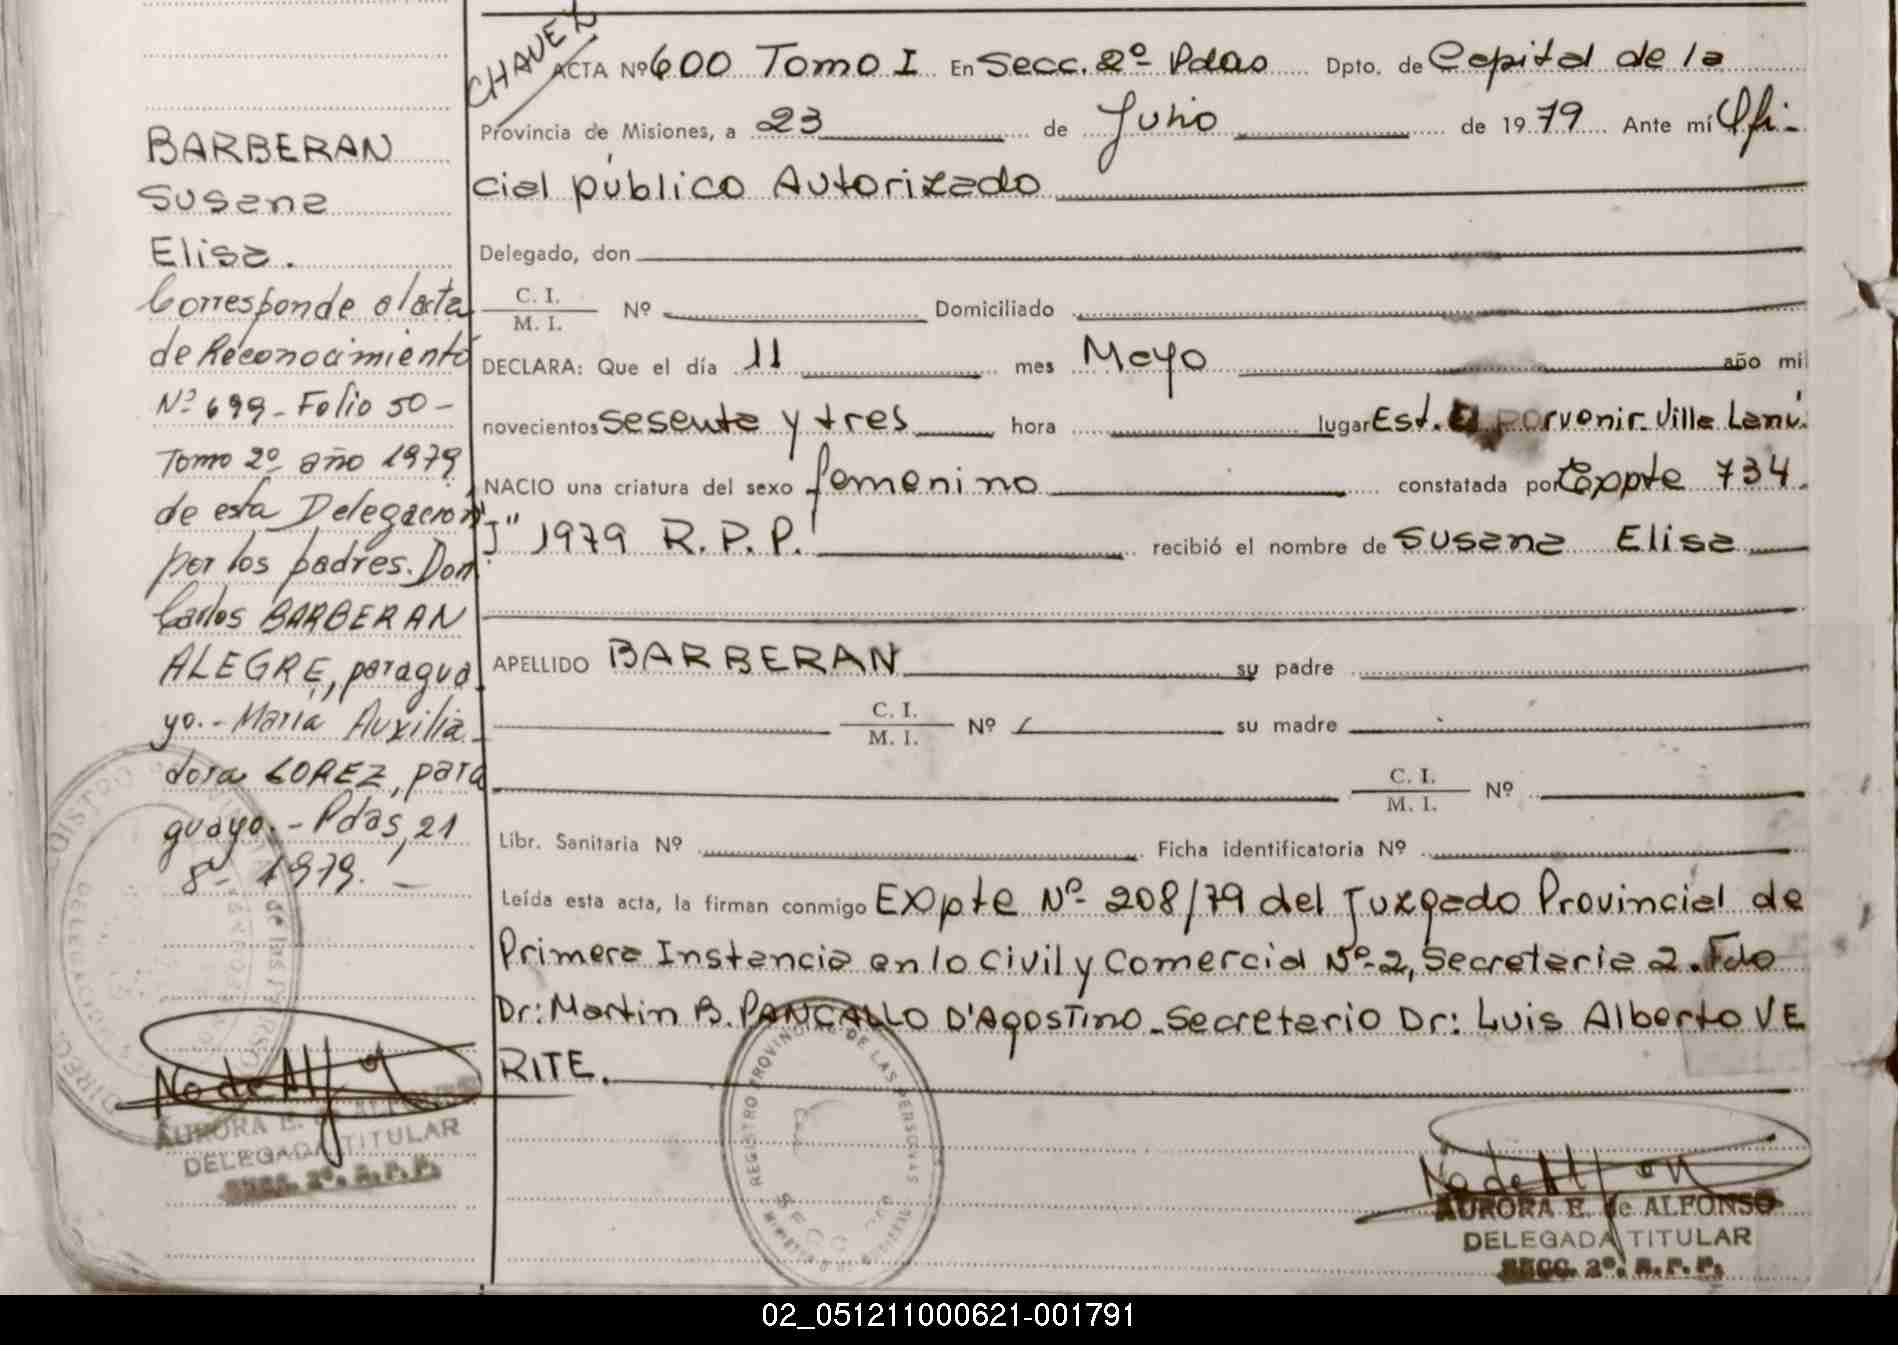 CHAVEZ
ACTA Nº 600 Tomo I En Secc. 2º Pdas Dpto. de Capital de la
Provincia de Misiones, a 23 de Julio de 1979 Ante mí Ofi-
cial público Autorizado
Delegado, don
C. I.
M. I. Nº Domiciliado
DECLARA: Que el día 11 mes Mayo año mil
novecientos sesenta y tres hora lugar Est. El porvenir Villa Lanú.
NACIO una criatura del sexo femenino constatada por Expte 734
"J" 1979 R.P.P. recibió el nombre de Susana Elisa
APELLIDO BARBERAN su padre
C. I.
M. I. Nº su madre
C. I.
M. I. Nº
Libr. Sanitaria Nº Ficha identificatoria Nº
Leída esta acta, la firman conmigo EXpte Nº 208/79 del Juzgado Provincial de
Primera Instancia en lo Civil y Comercial Nº 2, Secretaria 2. Fdo
Dr: Martin B. PANCALLO D'AgosTino - Secretario Dr: Luis Alberto VE
RITE.
BARBERAN
Susana
Elisa.
Corresponde al acta
de Reconocimiento
Nº 699 - Folio 50 -
Tomo 2º año 1979
de esta Delegación
por los padres. Don
Carlos BARBERAN
ALEGRE, paragua
yo. - Maria Auxilia
dora LOPEZ, para
guaya. - Pdas, 21
8 - 1979. -
AURORA E. de ALFONSO
DELEGADA TITULAR
SECC. 2º. R. P. P.
REGISTRO PROVINCIAL DE LAS PERSONAS
AURORA E. de ALFONSO
DELEGADA TITULAR
SECC. 2º. R. P. P.
02_051211000621-001791